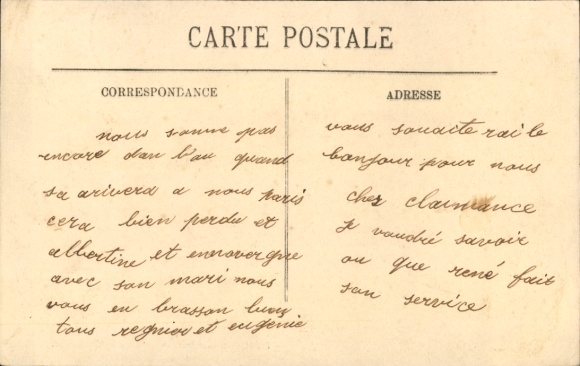 CARTE POSTALE
CORRESPONDANCE
nous somme pas
encore dan l'au quand
sa arivera a nous paris
cera bien perdu et
albertine et en novergne
avec son mari nous
vous en brasson bien
tous regnier et eugénie
ADRESSE
vous souaite rai le
bonjour pour nous
chez clairmance
je voudré savoir
ou que rené fait
son service